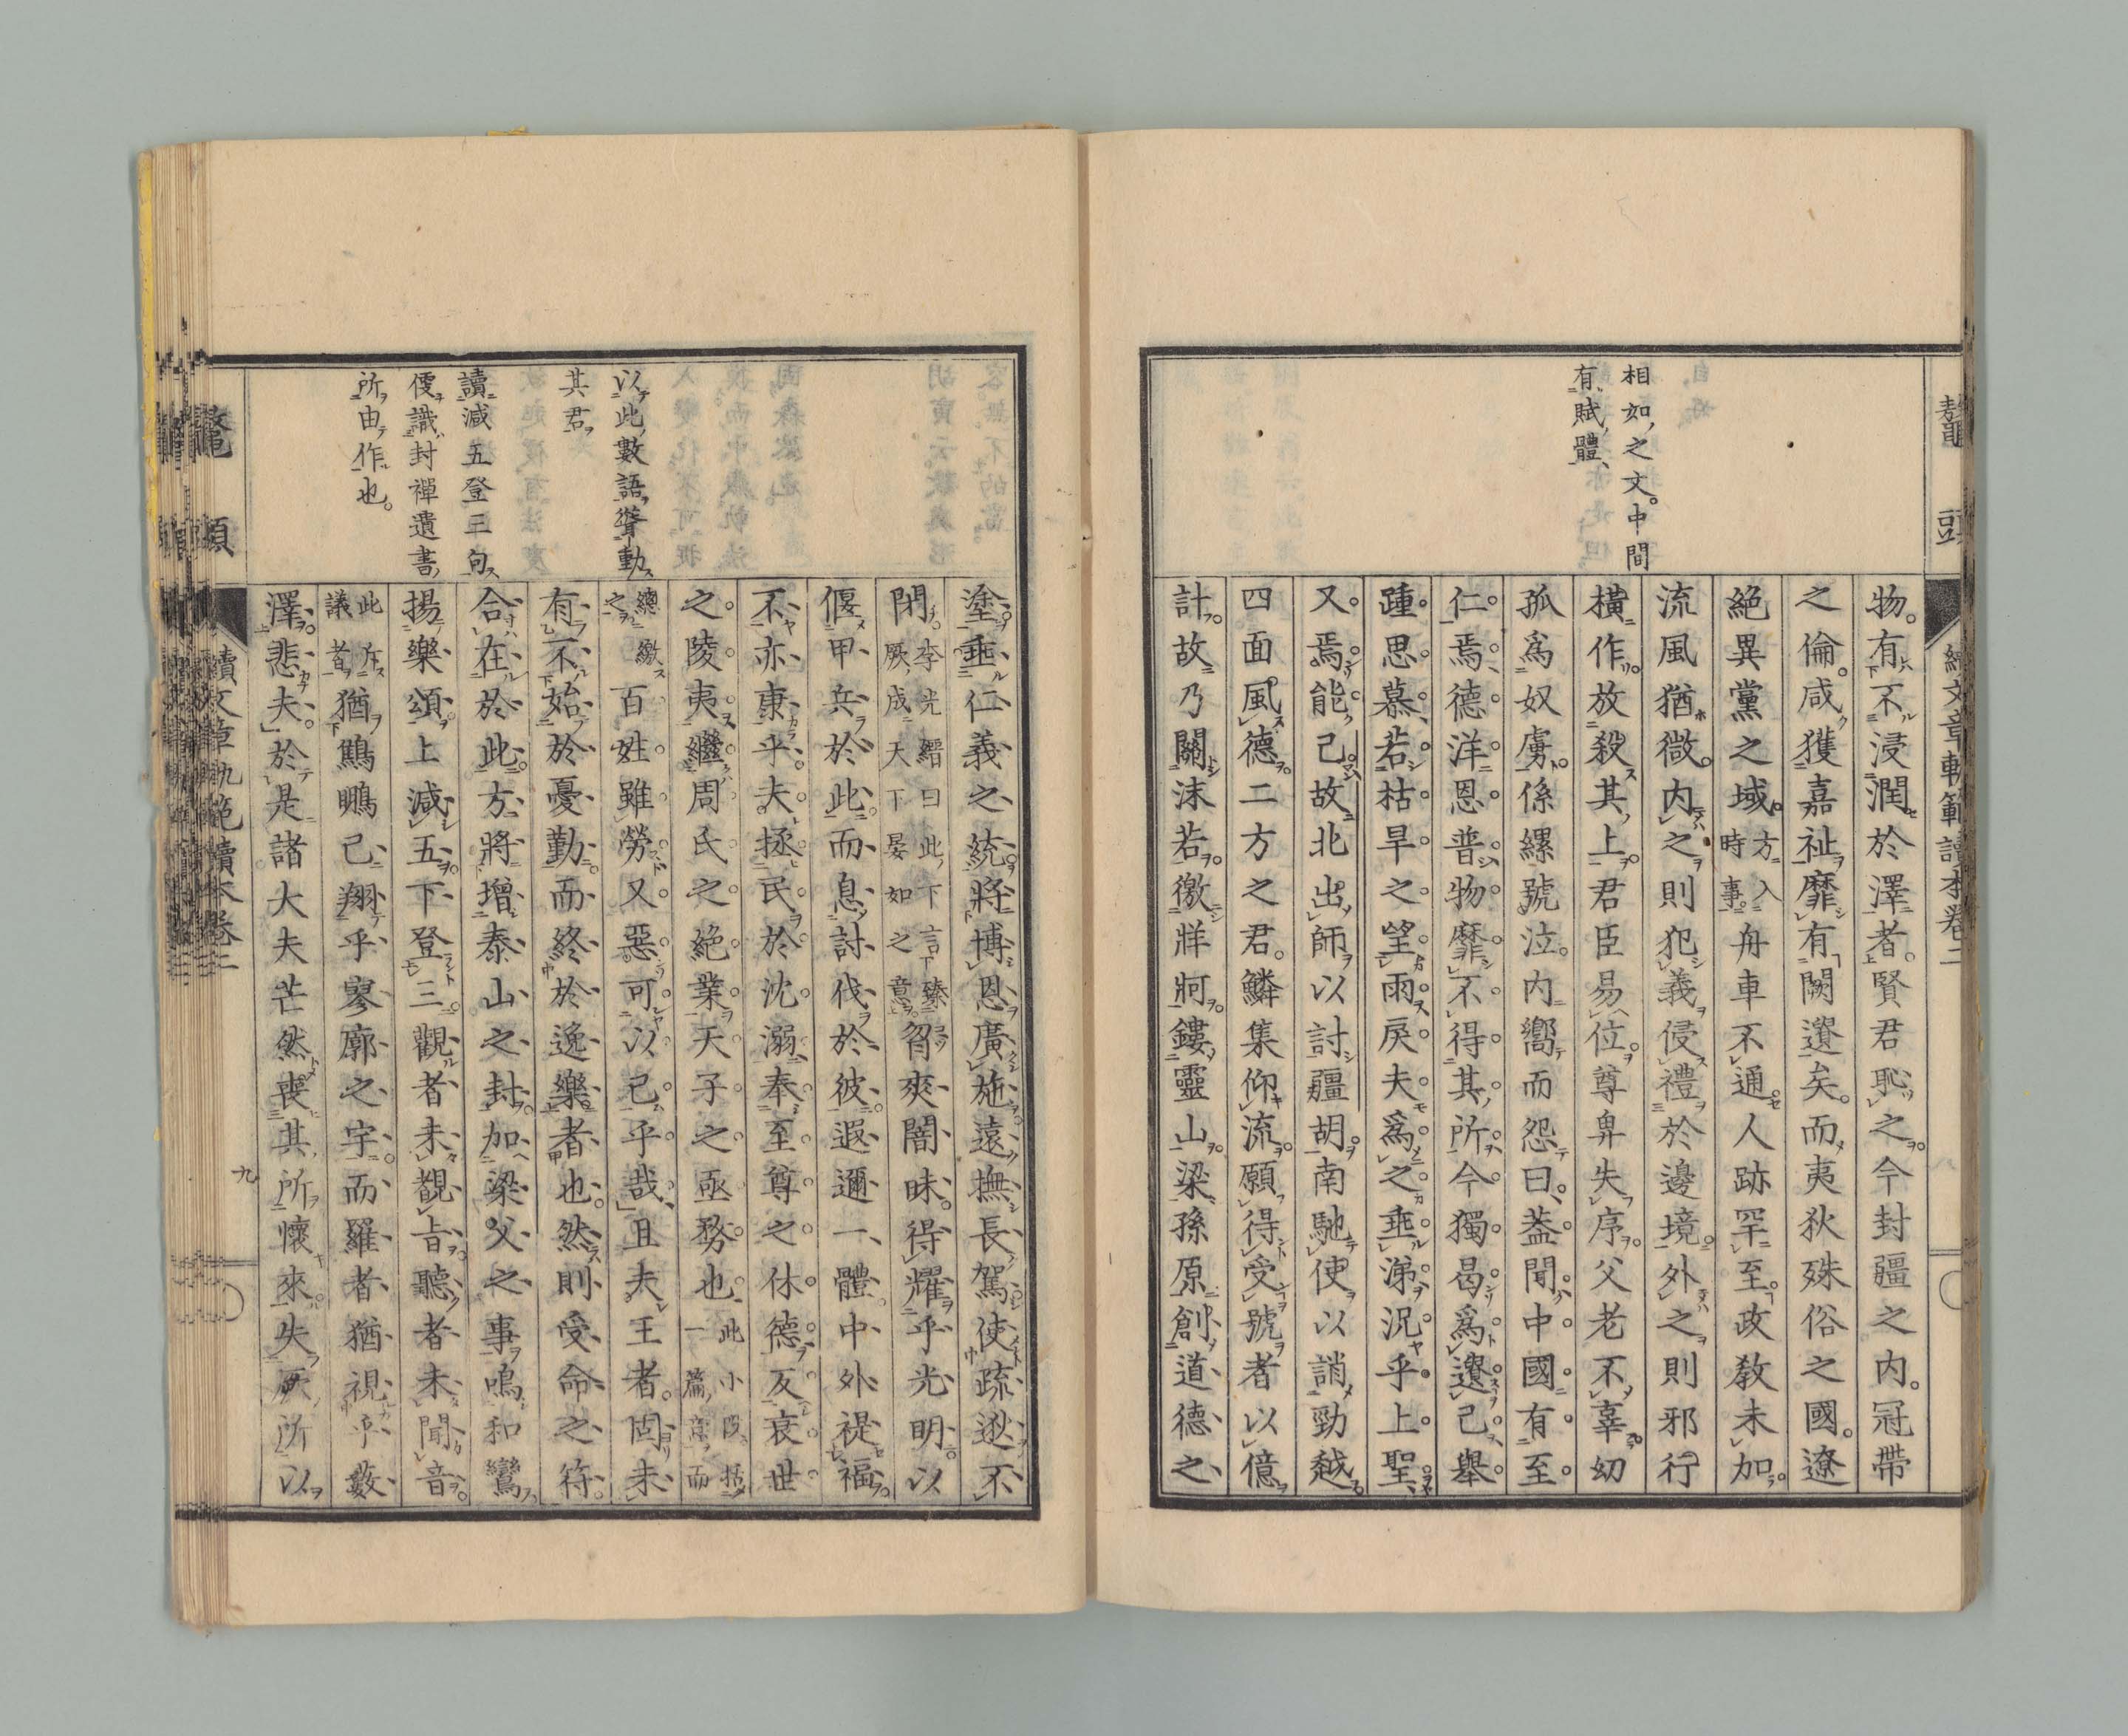 相如之文中間
有賦體
物有不浸潤於澤者賢君恥之今封疆之内冠帶
之倫咸獲嘉祉靡有闕遺矣而夷狄殊俗之國遼
絶異黨之域方入時事舟車不通人跡罕至政教未加
流風猶微内之則犯義侵禮於邊境外之則邪行
橫作放殺其上君臣易位尊卑失序父老不辜幼
孤爲奴虜係縲號泣内嚮而怨曰蓋聞中國有至
仁焉德洋恩普物靡不得其所今獨曷爲遺己舉
踵思慕若枯旱之望雨戾夫爲之垂涕況乎上聖
又焉能已故北出師以討疆胡南馳使以誚勁越
四面風德二方之君鱗集仰流願得受號者以億
計故乃關沫若徼牂牁鏤靈山梁孫原創道德之
以此數語聳動
其君
讀減五登三句
便識封禪遺書
所由作也
塗垂仁義之統將博恩廣施遠撫長駕使疏逖不
閉李光縉曰此下言臻厥成天下晏如之意曶爽闇昧得耀乎光明以
偃甲兵於此而息討伐於彼遐邇一體中外禔福
不亦康乎夫拯民於沈溺奉至尊之休德反衰世
之陵夷繼周氏之絶業天子之亟務也此小段括一篇意而
總繳之百姓雖勞又惡可以已乎哉且夫王者固未
有不始於憂勤而終於逸樂者也然則受命之符
合在於此方將增泰山之封加梁父之事鳴和鸞
揚樂頌上減五下登三觀者未覩旨聽者未聞音
此斥議者猶鷦鵬已翔乎寥廓之宇而羅者猶視乎藪
澤悲夫於是諸大夫芒然喪其所懷來失厥所以
鼇頭
續文章軌範讀本卷二
九